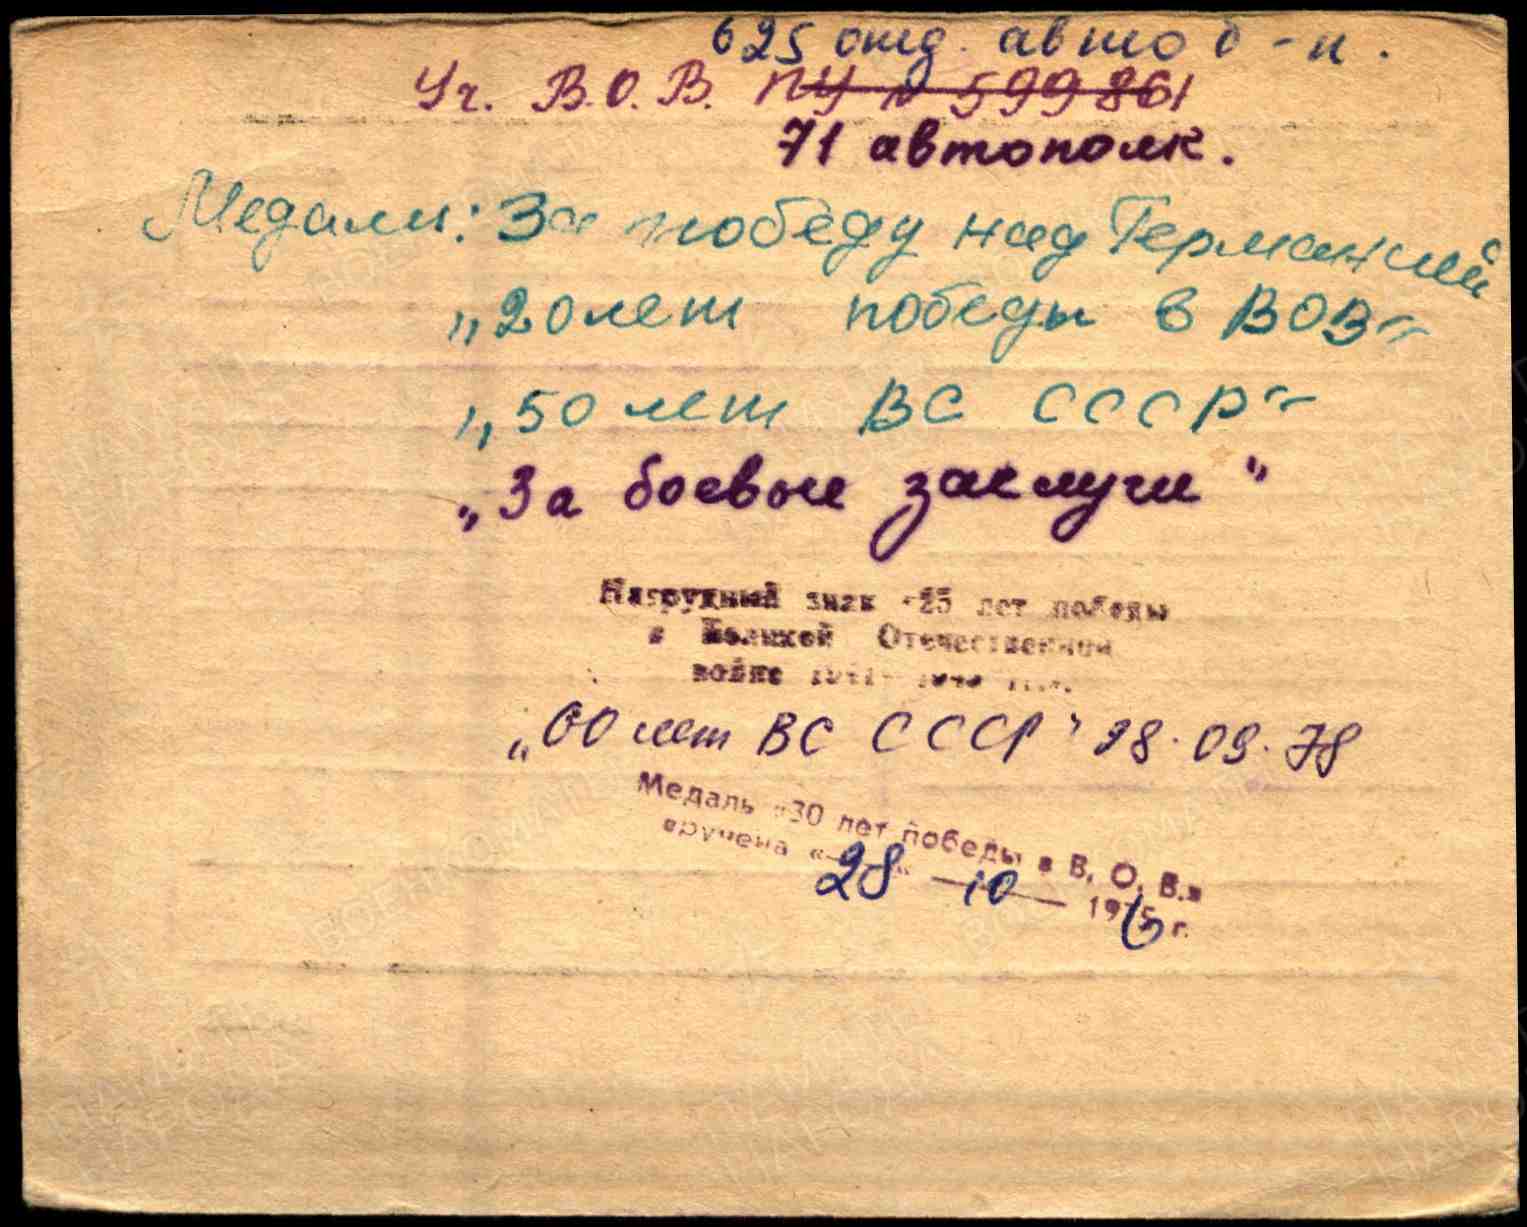 625 отд. авто б-н.
Уч. В.О.В. ПУ № 599861
71 автополк.
Медали: За победу над Германией
„20 лет победы в ВОВ"
„50 лет ВС СССР"
„За боевые заслуги"
Нагрудный знак «25 лет победы
в Великой Отечественной
войне 1941-1945 гг.
„60 лет ВС СССР" 28.09.78
Медаль «30 лет победы в В. О. В.»
вручена «28» 10 1976 г.